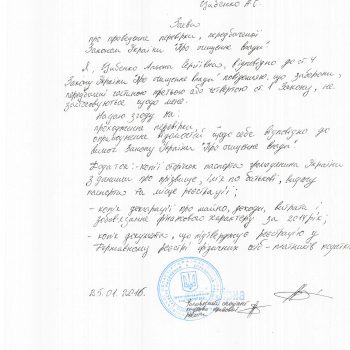 Цибенко А.С.
Заява
про проведення перевірки, передбаченої
Законом України "Про очищення влади"
Я, Цибенко Альона Сергіївна, відповідно до ст. 4
Закону України "Про очищення влади" повідомляю, що заборони,
передбачені частиною третьою або четвертою ст. 1 Закону, не
застосовуються щодо мене.
Надаю згоду на:
проходження перевірки;
оприлюднення відомостей щодо себе відповідно до
вимог Закону України "Про очищення влади"
Додаток: - копії сторінок паспорта громадянина України
з даними про прізвище, ім'я, по батькові, видачу
паспорта та місце реєстрації;
- копія декларації про майно, доходи, витрати і
зобов'язання фінансового характеру за 2014 рік;
- копія документа, що підтверджує реєстрацію у
Державному реєстрі фізичних осіб - платників податків.
25.01.2016.